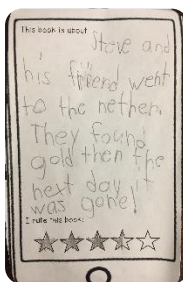 This book is about
Steve and
his friend went
to the nether.
They found
gold then the
next day it
was gone!
I rate this book: